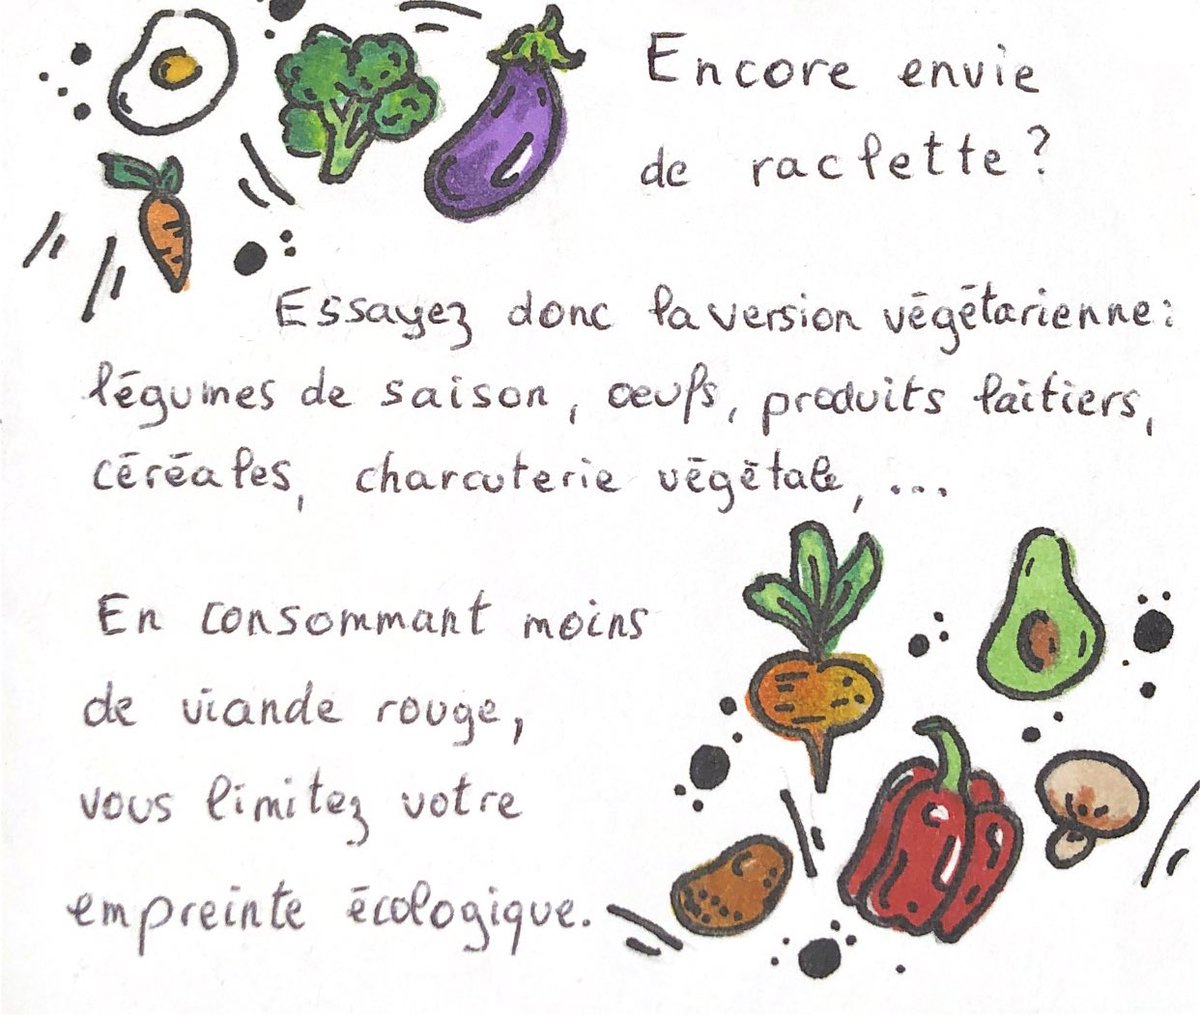 Encore envie
de raclette ?
Essayez donc la version végétarienne :
légumes de saison, œufs, produits laitiers,
céréales, charcuterie végétale, ...
En consommant moins
de viande rouge,
vous limitez votre
empreinte écologique.